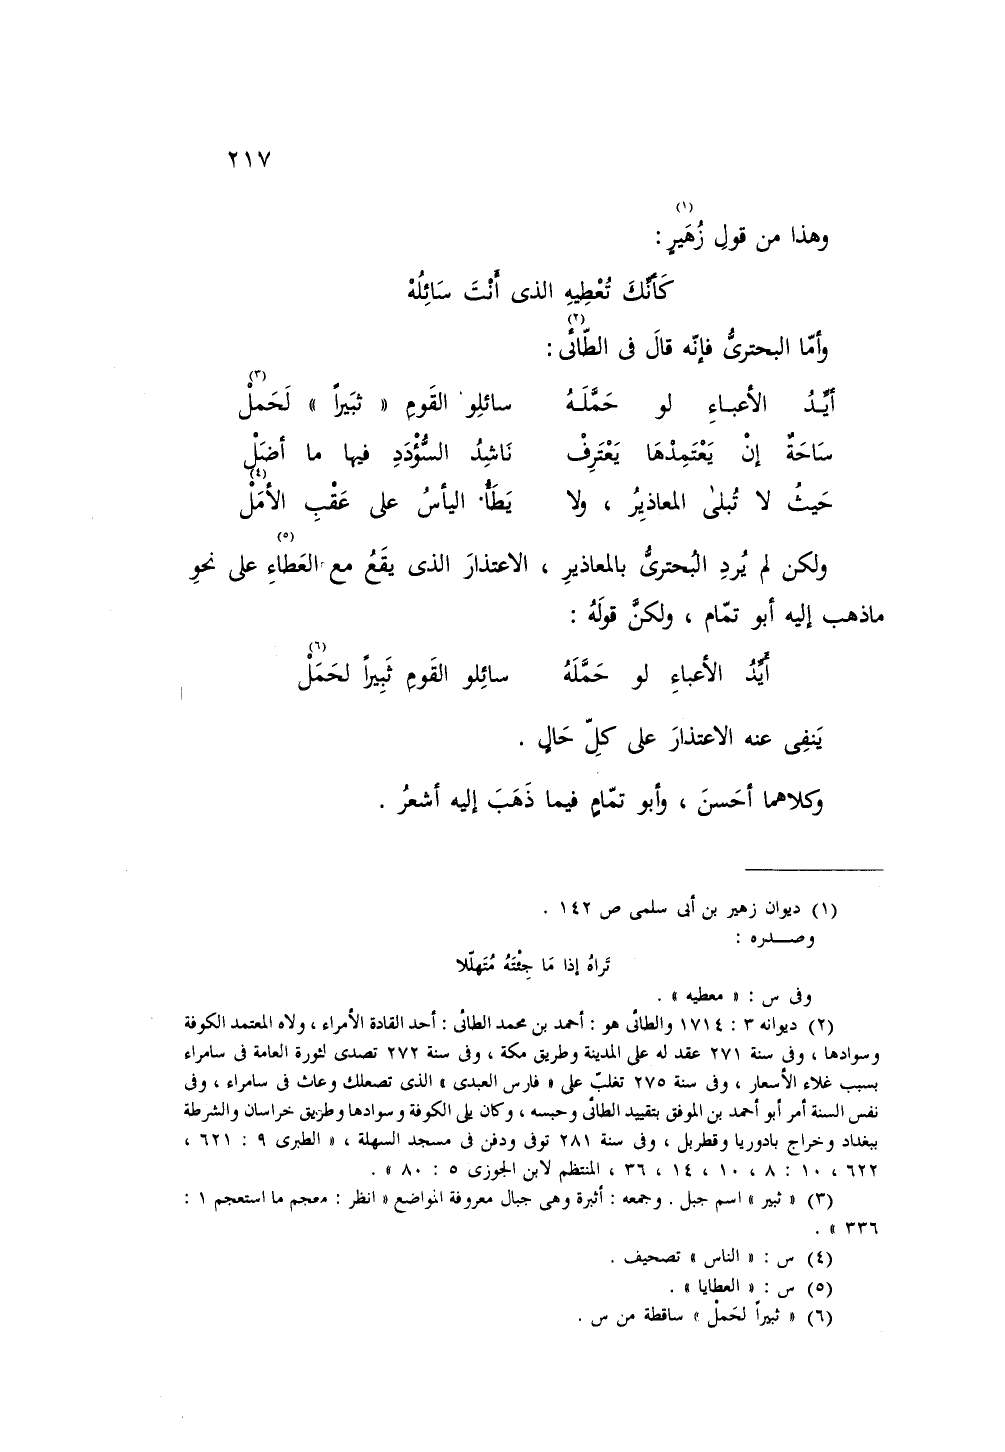 ٢١٧
(١)
وهذا من قولِ زُهَيرٍ :
كَأَنَّكَ تُعْطِيهِ الذى أَنْتَ سَائِلُهْ
(٢)
وأمّا البحترىُّ فإنّه قالَ فى الطّائى :
(٣)
أيِّدُ الأعباءِ لو حَمَّلَهُ سائلِو القَومِ « ثبَيراً » لَحَملْ
سَاحَةٌ إنْ يَعْتَمِدْهَا يَعْتَرِفْ نَاشِدُ السُّؤْدَدِ فيها ما أضَلْ
(٤)
حَيثُ لا تُبلىٰ المعاذيرُ ، ولا يَطَأُ اليأسُ على عَقْبِ الأمَلْ
(٥)
ولكن لم يُردِ البُحترىُّ بالمعاذيرِ ، الاعتذارَ الذى يقَعُ مع العَطاءِ على نحوِ
ماذهب إليه أبو تمّام ، ولكنَّ قولَهُ :
(٦)
أَيِّدُ الأعباءِ لو حَمَّلَهُ سائِلو القَومِ ثَبِيراً لحَمَلْ
يَنفِى عنه الاعتذارَ على كلِّ حَالٍ .
وكلاهما أحَسنَ ، وأبو تمّامٍ فيما ذَهَبَ إليه أشعرُ .
(١) ديوان زهير بن أبى سلمى ص ١٤٢ .
وصدره :
تَراهُ إذا مَا جِئْتَهُ مُتَهلّلا
وفى س : « معطيه » .
(٢) ديوانه ٣ : ١٧١٤ والطائى هو : أحمد بن محمد الطائى : أحد القادة الأمراء ، ولاه المعتمد الكوفة
وسوادها ، وفى سنة ٢٧١ عقد له على المدينة وطريق مكة ، وفى سنة ٢٧٢ تصدى لثورة العامة فى سامراء
بسبب غلاء الأسعار ، وفى سنة ٢٧٥ تغلبّ على « فارس العبدى » الذى تصعلك وعاث فى سامراء ، وفى
نفس السنة أمر أبو أحمد بن الموفق بتقييد الطائى وحبسه ، وكان يلى الكوفة وسوادها وطريق خراسان والشرطة
ببغداد وخراج بادوريا وقطربل ، وفى سنة ٢٨١ توفى ودفن فى مسجد السهلة ، « الطبرى ٩ : ٦٢١ ،
٦٢٢ ، ١٠ : ٨ ، ١٠ ، ١٤ ، ٣٦ ، المنتظم لابن الجوزى ٥ : ٨٠ » .
(٣) « ثبير » اسم جبل . وجمعه : أثبرة وهى جبال معروفة المواضع « انظر : معجم ما استعجم ١ :
٣٣٦ » .
(٤) س : « الناس » تصحيف .
(٥) س : « العطايا » .
(٦) « ثبيراً لحَملْ » ساقطة من س .